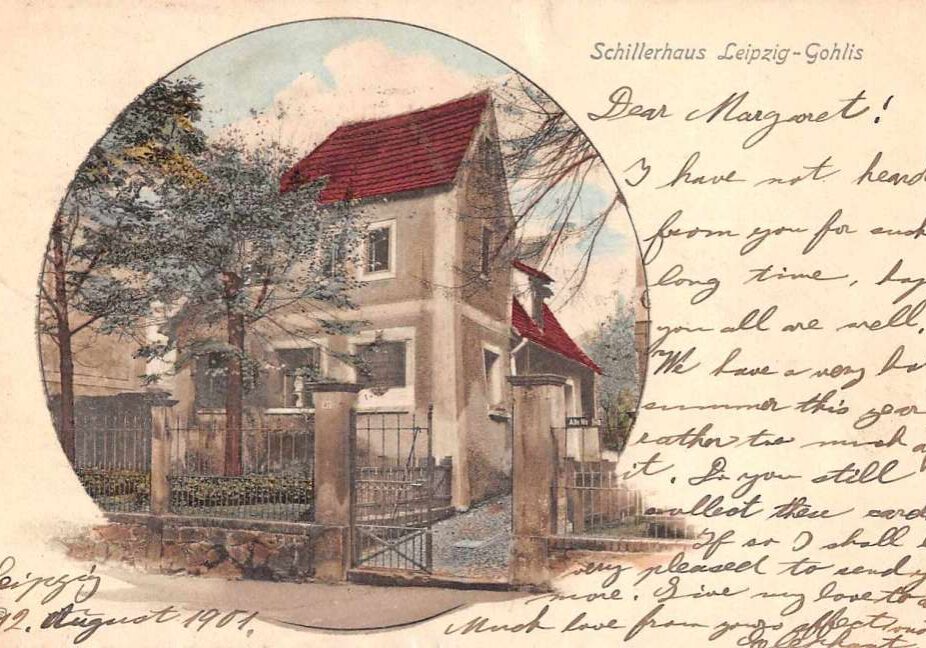 Schillerhaus Leipzig-Gohlis
Dear Margaret!
I have not heard
from you for such
long time, hop
you all are well.
We have a very
summer this year
rather too much
it. Do you still
collect these card
If so I shall
very pleased to send y
more. Give my love to a
Much love from yours affect
Leipzig
12. August 1901.